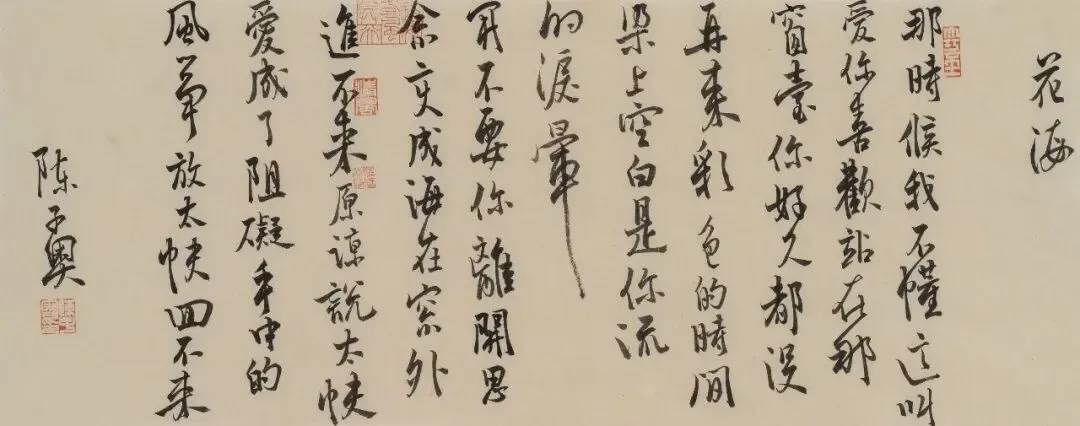 花海
那時候我不懂这叫
爱你喜歡站在那
窗臺你好久都沒
再来彩色的時間
染上空白是你流
的淚暈
不要你離開思
念变成海在窗外
進不来原諒說太快
愛成了阻礙手中的
風筝放太快回不来
陈子奧